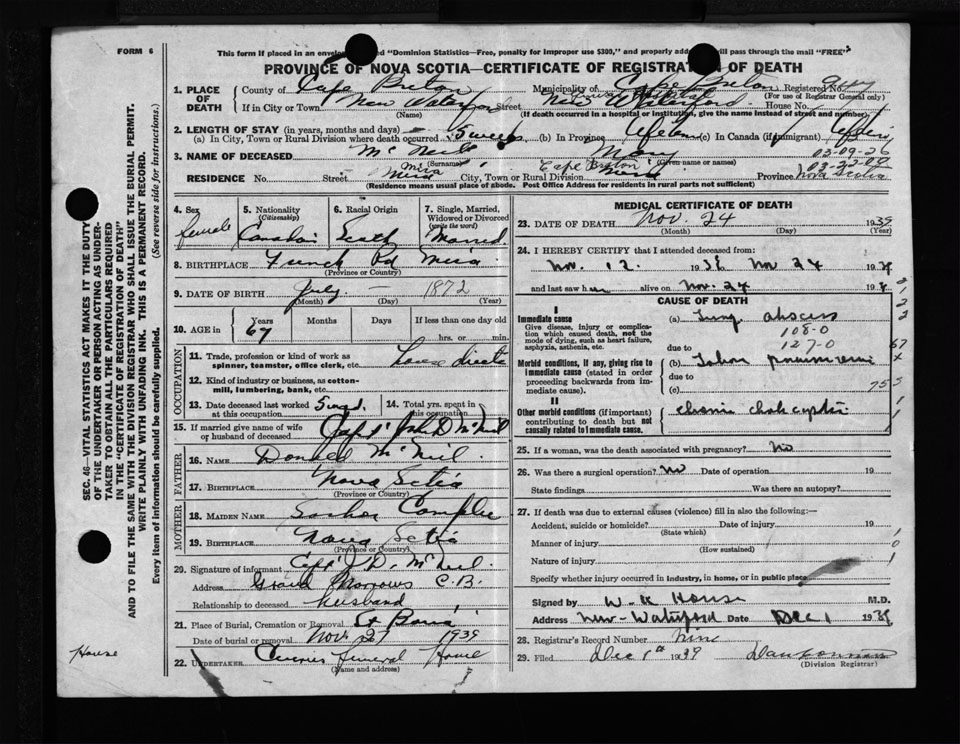 FORM 6
This form if placed in an envelo "Dominion Statistics—Free, penalty for improper use $300," and properly addre will pass through the mail "FREE"
PROVINCE OF NOVA SCOTIA—CERTIFICATE OF REGISTRATION OF DEATH
1. PLACE OF DEATH County of Cape Breton Municipality of Cape Breton Registered No.
(For use of Registrar General only)
If in City or Town New Waterford Street New Waterford House No.
(Name) (If death occurred in a hospital or institution, give the name instead of street and number)
2. LENGTH OF STAY (in years, months and days)
(a) In City, Town or Rural Division where death occurred 5 weeks (b) In Province Lifetime (c) In Canada (if immigrant)
3. NAME OF DECEASED Mc Neil Mary 03-09-26
(Surname) (Given name or names) 03-22-09
RESIDENCE No. Street Mira City, Town or Rural Division Cape Breton Mira Province Nova Scotia
(Residence means usual place of abode. Post Office Address for residents in rural parts not sufficient)
4. Sex 5. Nationality (Citizenship) 6. Racial Origin 7. Single, Married, Widowed or Divorced (write the word)
female Canadian Scotch Married
8. BIRTHPLACE French Rd Mira
(Province or Country)
9. DATE OF BIRTH July — 1872
(Month) (Day) (Year)
10. AGE in Years Months Days If less than one day old
67 hrs. or min.
OCCUPATION
11. Trade, profession or kind of work as spinner, teamster, office clerk, etc.
12. Kind of industry or business, as cotton-mill, lumbering, bank, etc.
13. Date deceased last worked at this occupation
14. Total yrs. spent in this occupation
15. If married give name of wife or husband of deceased Capt John D McNeil
FATHER
16. NAME Donald McNeil
17. BIRTHPLACE Nova Scotia
(Province or Country)
MOTHER
18. MAIDEN NAME
19. BIRTHPLACE Nova Scotia
(Province or Country)
20. Signature of informant Capt J. D. McNeil
Address Grand Narrows C.B.
Relationship to deceased husband
21. Place of Burial, Cremation or Removal
Date of burial or removal Nov 27 1939
22. UNDERTAKER Funeral Home
MEDICAL CERTIFICATE OF DEATH
23. DATE OF DEATH Nov. 24 1939
(Month) (Day) (Year)
24. I HEREBY CERTIFY that I attended deceased from:
Nov. 12. 193 Nov 24 19
and last saw h er alive on Nov. 24 19
CAUSE OF DEATH
I
Immediate cause
Give disease, injury or complication which caused death, not the mode of dying, such as heart failure, asphyxia, asthenia, etc.
(a) Lung abscess
108-0
due to 127-0
Morbid conditions, if any, giving rise to immediate cause (stated in order proceeding backwards from immediate cause).
(b) Lobar pneumonia
due to
(c)
II
Other morbid conditions (if important) contributing to death but not causally related to immediate cause.
chronic cholecystitis
25. If a woman, was the death associated with pregnancy? No
26. Was there a surgical operation? No Date of operation 19
State findings Was there an autopsy?
27. If death was due to external causes (violence) fill in also the following:—
Accident, suicide or homicide? Date of injury 19
(State which)
Manner of injury
(How sustained)
Nature of injury
Specify whether injury occurred in industry, in home, or in public place
Signed by W. K House M.D.
Address New-Waterford Date Dec 1 1939
28. Registrar's Record Number
29. Filed Dec 1st 1939
(Division Registrar)
SEC. 46—VITAL STATISTICS ACT MAKES IT THE DUTY
OF THE UNDERTAKER OR PERSON ACTING AS UNDER-
TAKER TO OBTAIN ALL THE PARTICULARS REQUIRED
IN THE "CERTIFICATE OF REGISTRATION OF DEATH"
AND TO FILE THE SAME WITH THE DIVISION REGISTRAR WHO SHALL ISSUE THE BURIAL PERMIT.
WRITE PLAINLY WITH UNFADING INK. THIS IS A PERMANENT RECORD.
Every item of information should be carefully supplied. (See reverse side for instructions.)
House